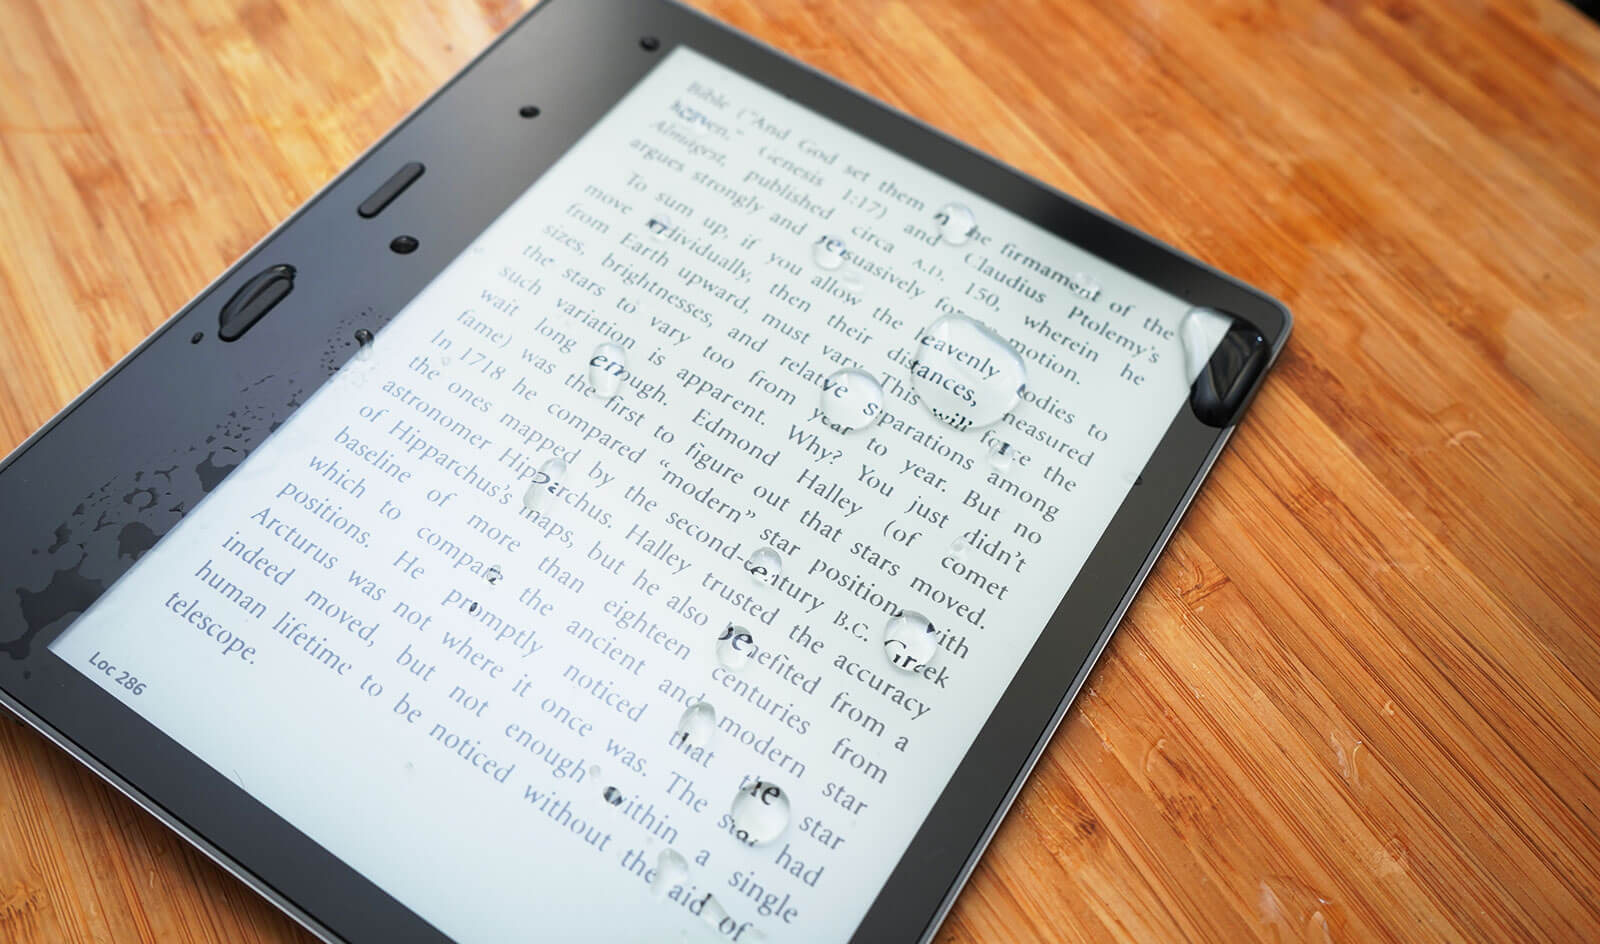 Bible ("And God set them in the firmament of the
heaven," Genesis 1:17) and Claudius Ptolemy's
Almagest, published circa A.D. 150, wherein he
argues strongly and persuasively for motion.
To sum up, if you allow the heavenly bodies to
move individually, then their distances, measured
from Earth upward, must vary. This will force the
sizes, brightnesses, and relative separations among
the stars to vary too from year to year. But no
such variation is apparent. Why? You just didn't
wait long enough. Edmond Halley (of comet
fame) was the first to figure out that stars moved.
In 1718 he compared "modern" star positions with
the ones mapped by the second-century B.C. Greek
astronomer Hipparchus. Halley trusted the accuracy
of Hipparchus's maps, but he also benefited from a
baseline of more than eighteen centuries from
which to compare the ancient and modern star
positions. He promptly noticed that the star
Arcturus was not where it once was. The star had
indeed moved, but not enough within a single
human lifetime to be noticed without the aid of
telescope.
Loc 286